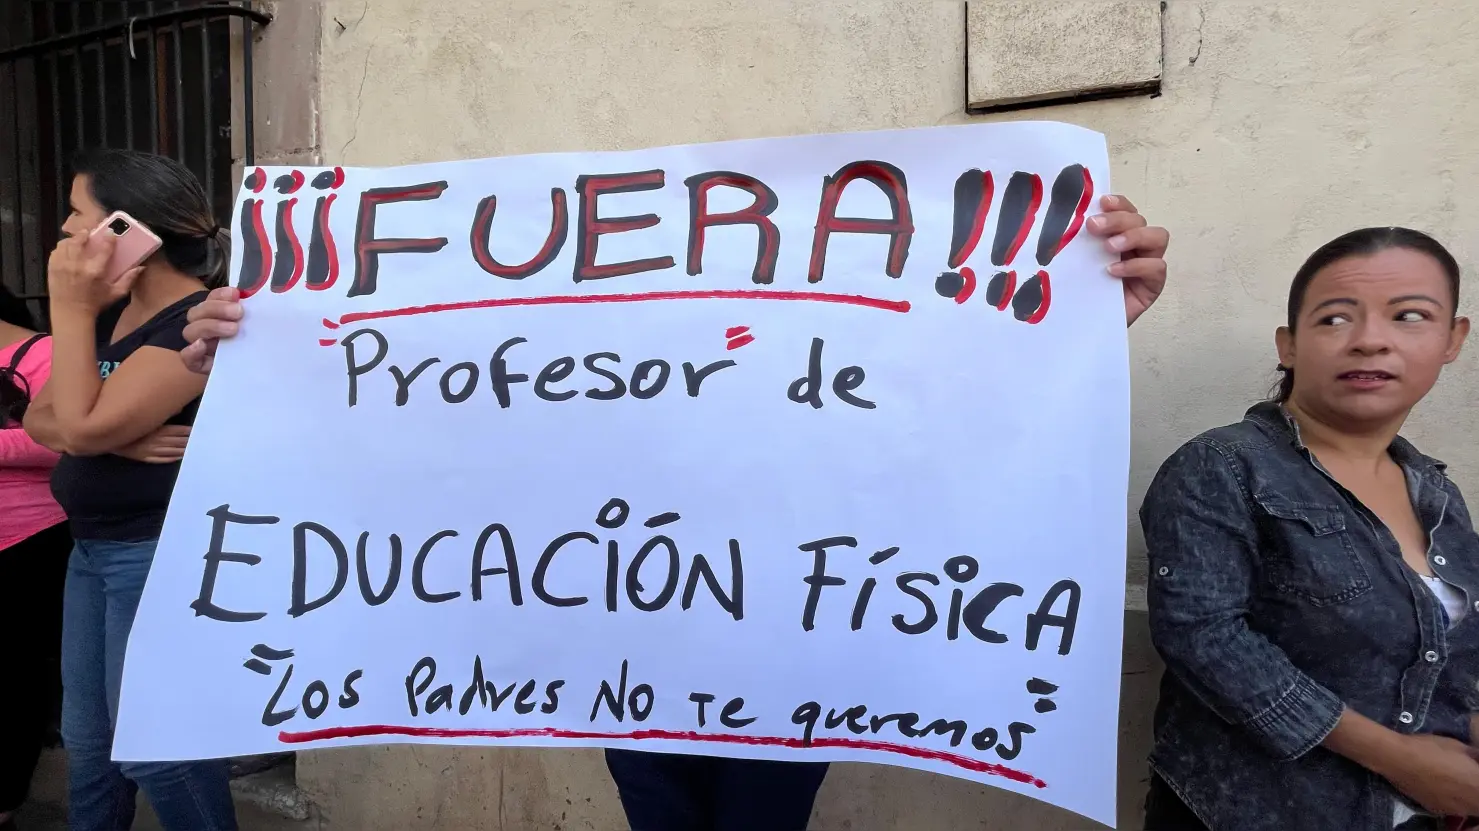 ¡¡¡FUERA!!!
"Profesor" de
EDUCACIÓN FÍSICA
"Los Padres No Te queremos"